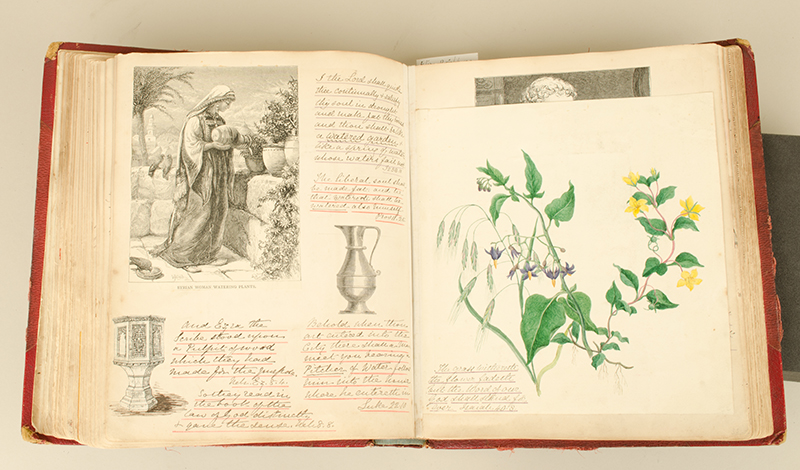 & the Lord shall guide
thee continually & satisfy
thy soul in drought
and make fat thy bones
and thou shalt be like
a watered garden
like a spring of water
whose waters fail not
The liberal soul shall
be made fat and he
that watereth shall be
watered also himself
Prov.
SYRIAN WOMAN WATERING PLANTS.
And Ezra the
Scribe stood upon
a Pulpit of wood
which they had
made for the purpose
Neh. 8. 4.
So they read in
the book of the
law of God distinctly
& gave the sense. Neh. 8. 8.
Behold when ye
are entered into the
City there shall a
meet you bearing a
Pitcher of Water follow
him into the house
where he entereth in
Luke 22.10
The grass withereth
the flower fadeth
but the Word of our
God shall stand for
ever Isaiah 40. 8.